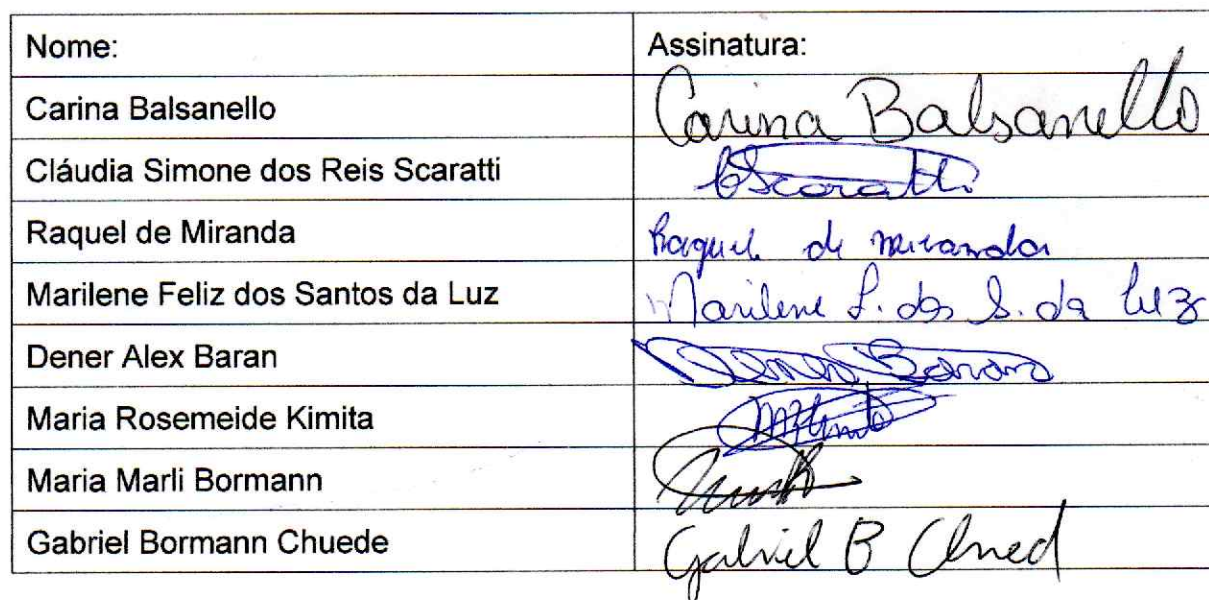 Nome: Assinatura:
Carina Balsanello Carina Balsanello
Cláudia Simone dos Reis Scaratti CScaratti
Raquel de Miranda Raquel de Miranda
Marilene Feliz dos Santos da Luz Marilene F. dos S. da Luz
Dener Alex Baran Dener Baran
Maria Rosemeide Kimita
Maria Marli Bormann
Gabriel Bormann Chuede Gabriel B Chued